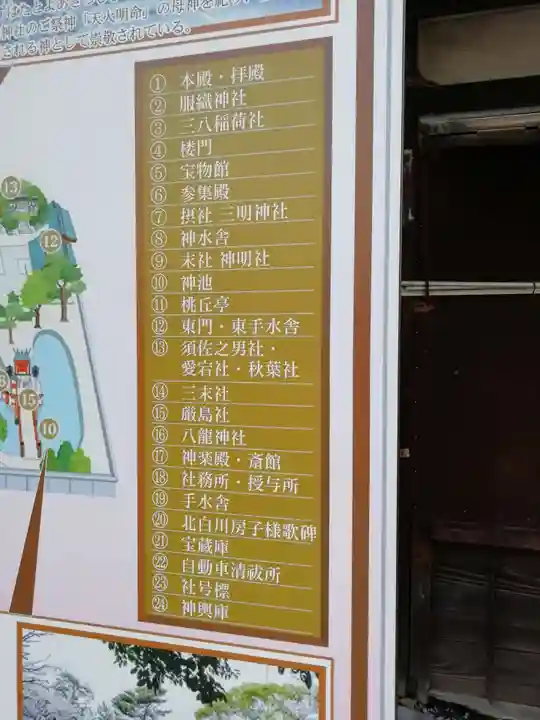 神社のご祭神『天火明命』の母神を祀り
される神として崇敬されている。
① 本殿・拝殿
② 服織神社
③ 三八稲荷社
④ 楼門
⑤ 宝物館
⑥ 参集殿
⑦ 摂社 三明神社
⑧ 神水舎
⑨ 末社 神明社
⑩ 神池
⑪ 桃丘亭
⑫ 東門・東手水舎
⑬ 須佐之男社・
愛宕社・秋葉社
⑭ 三末社
⑮ 厳島社
⑯ 八龍神社
⑰ 神楽殿・斎館
⑱ 社務所・授与所
⑲ 手水舎
⑳ 北白川房子様歌碑
㉑ 宝蔵庫
㉒ 自動車清祓所
㉓ 社号標
㉔ 神輿庫
13
12
15
10